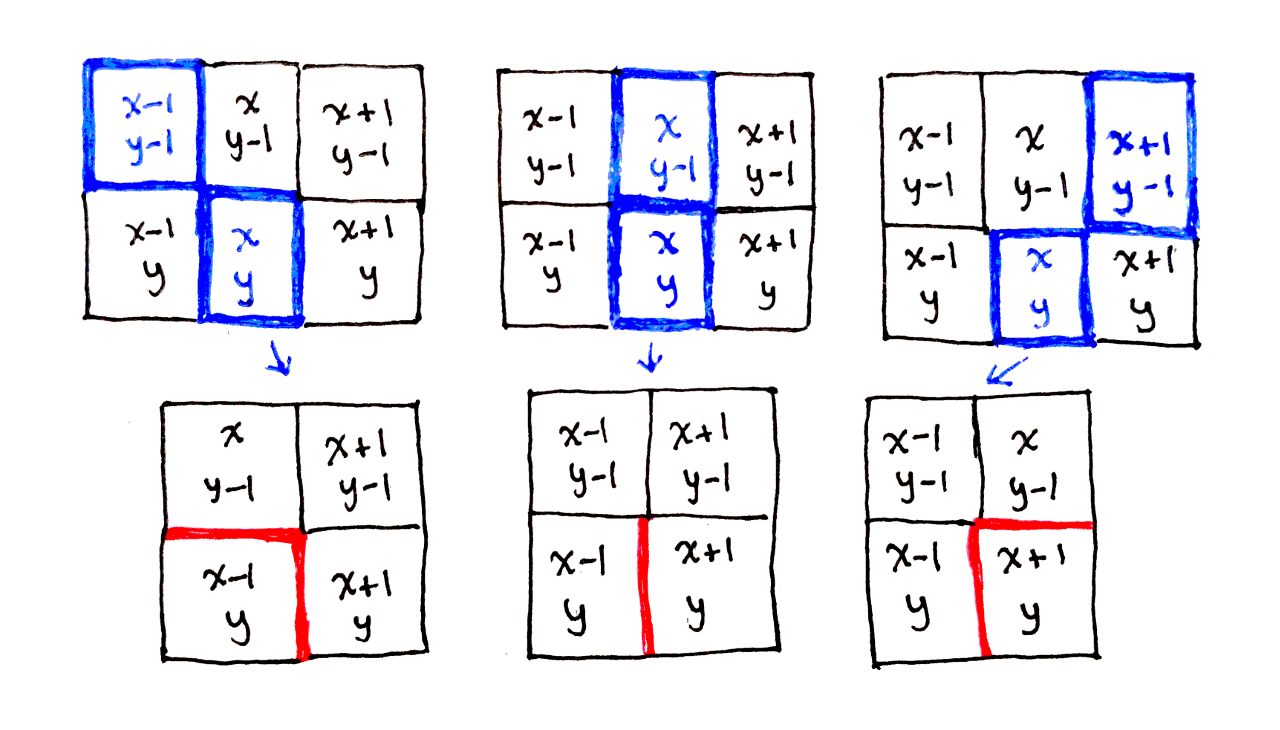 x-1
y-1
x
y-1
x+1
y-1
x-1
y
x
y
x+1
y
x-1
y-1
x
y-1
x+1
y-1
x-1
y
x
y
x+1
y
x-1
y-1
x
y-1
x+1
y-1
x-1
y
x
y
x+1
y
x
y-1
x+1
y-1
x-1
y
x+1
y
x-1
y-1
x+1
y-1
x-1
y
x+1
y
x-1
y-1
x
y-1
x-1
y
x+1
y